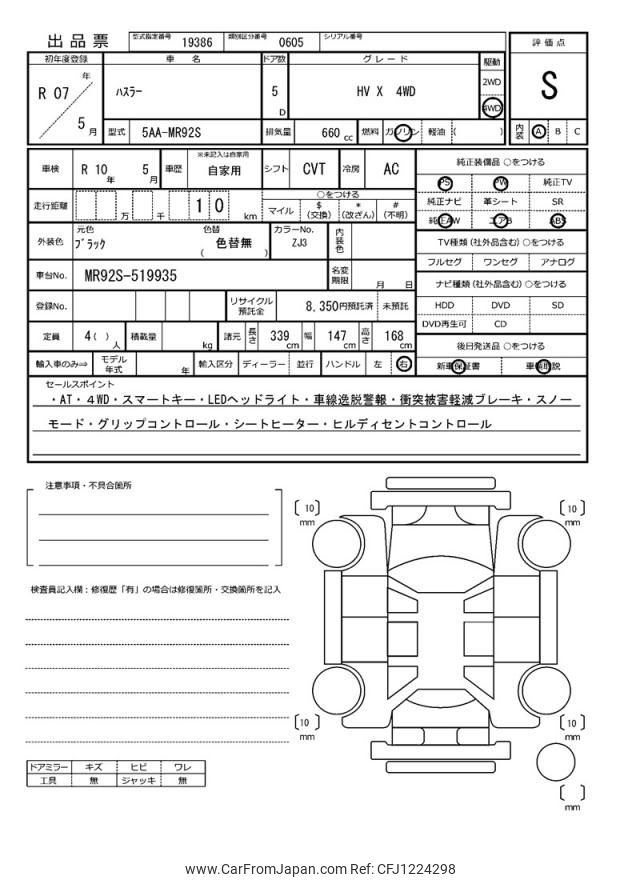 出品票 型式指定番号 19386 類別区分番号 0605 シリアル番号
初年度登録 車 名 ドア数 グレード 駆動 評価点
R 07 年 5 月 ハスラー 5 D HV X 4WD 2WD 4WD S
型式 5AA-MR92S 排気量 660 cc 燃料 ガソリン 軽油 ( ) 内装 A B C
車検 R 10 年 5 月 車歴 ※未記入は自家用 自家用 シフト CVT 冷房 AC 純正装備品 ○をつける
PS PW 純正TV
走行距離 万 千 1 0 km ○をつける 純正ナビ 革シート SR
マイル $ (交換) * (改ざん) # (不明) 純正AW エアB ABS
外装色 元色 ブラック 色替 色替無 ( ) カラーNo. ZJ3 内装色 TV種類(社外品含む)○をつける
フルセグ ワンセグ アナログ
車台No. MR92S-519935 名変期限 月 日 ナビ種類(社外品含む)○をつける
登録No. リサイクル預託金 8,350円預託済 未預託 HDD DVD SD
DVD再生可 CD
定員 4( ) 人 積載量 kg 諸元 長さ 339 cm 幅 147 cm 高さ 168 cm 後日発送品 ○をつける
輸入車のみ⇒ モデル年式 年 輸入区分 ディーラー 並行 ハンドル 左 右 新車保証書 車輌取説
セールスポイント
・AT・4WD・スマートキー・LEDヘッドライト・車線逸脱警報・衝突被害軽減ブレーキ・スノー
モード・グリップコントロール・シートヒーター・ヒルディセントコントロール
注意事項・不具合箇所
〔 10 〕 mm 〔 10 〕 mm
検査員記入欄:修復歴「有」の場合は修復箇所・交換箇所を記入
〔 10 〕 mm 〔 10 〕 mm
ドアミラー キズ ヒビ ワレ
工具 無 ジャッキ 無
〔 〕 mm
www.CarFromJapan.com Ref: CFJ1224298